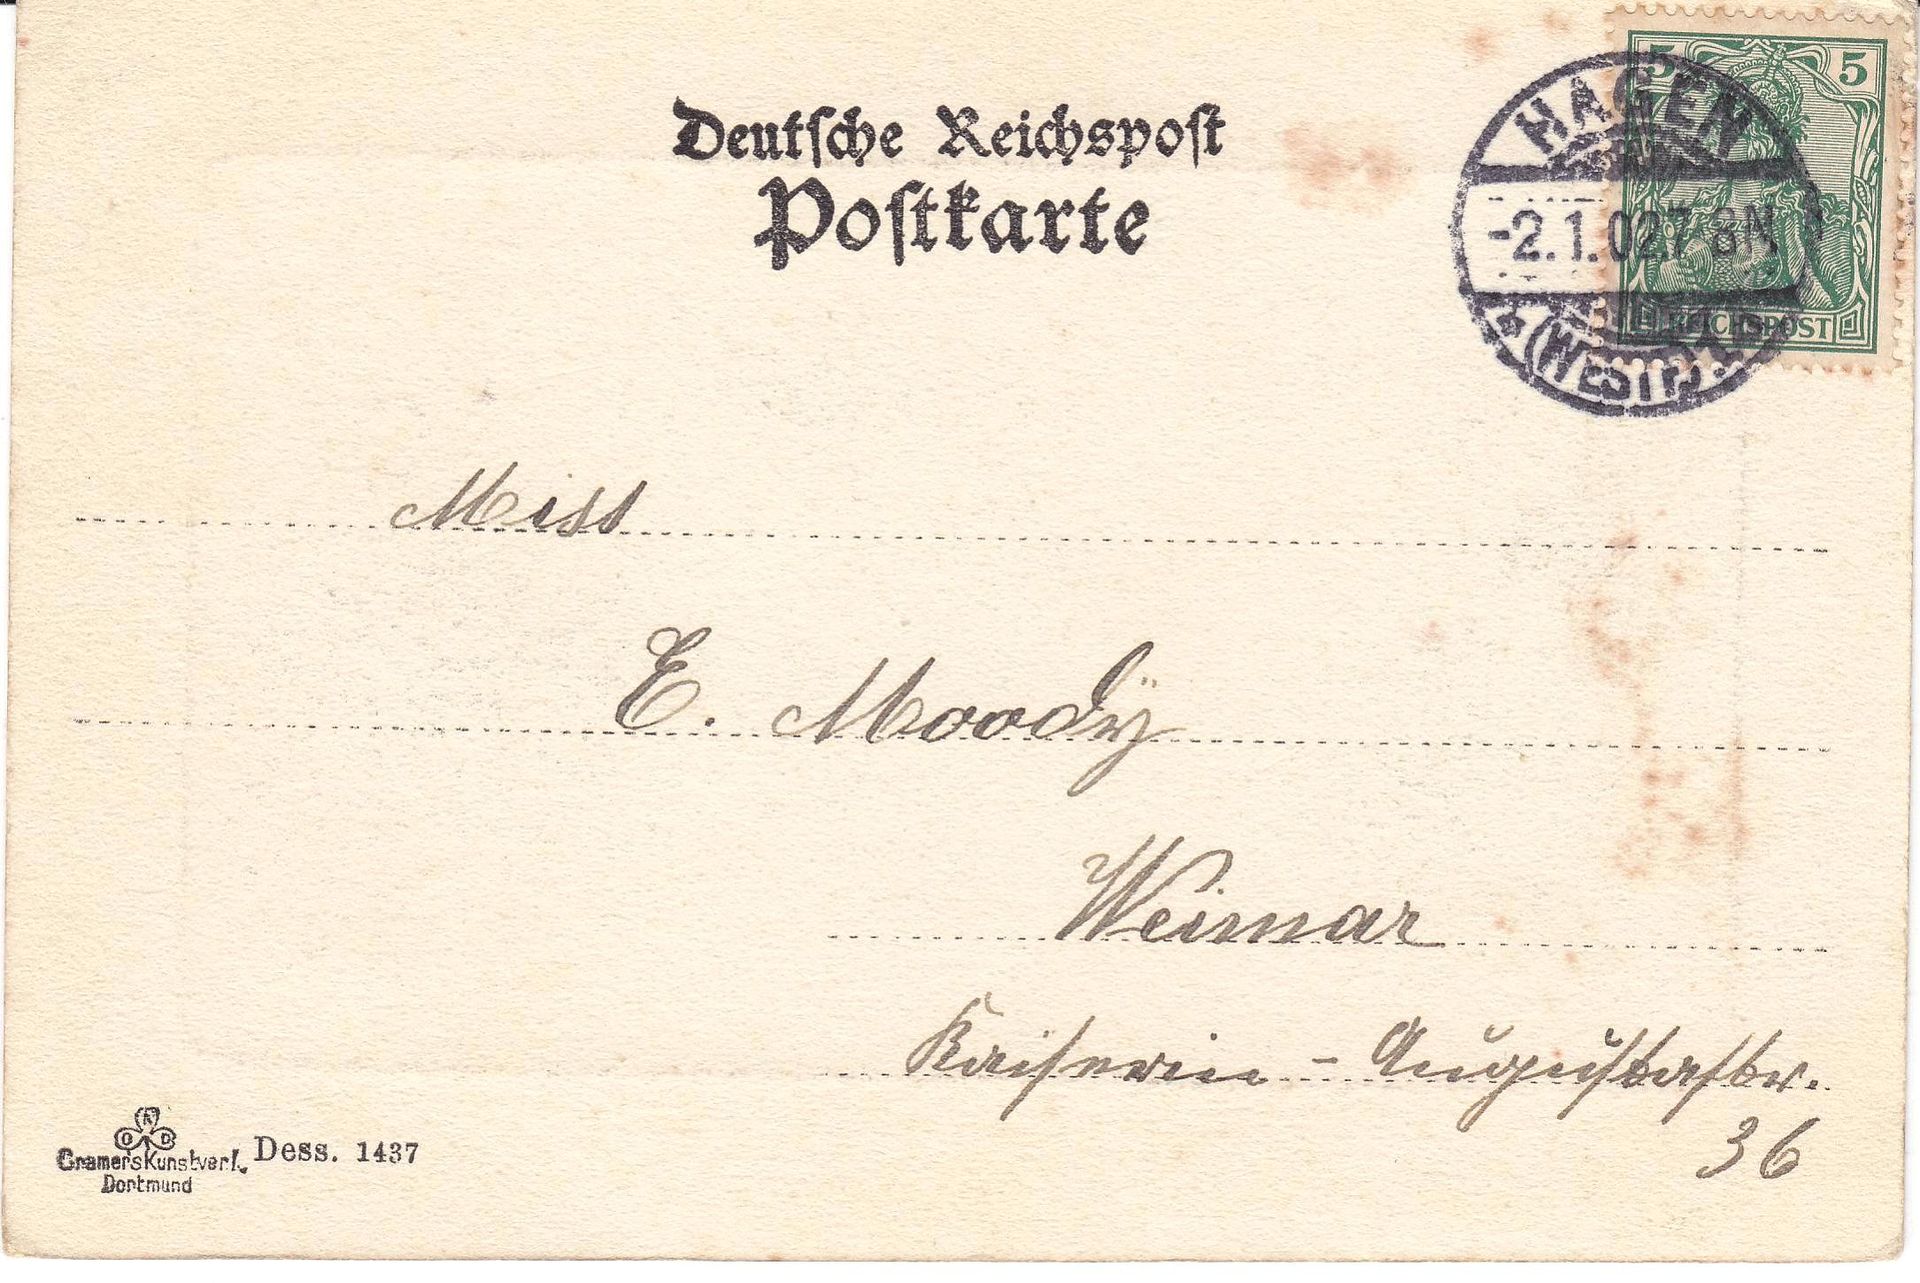 Deutsche Reichspost
Postkarte
5 5
HAGEN
-2.1.02.7-8N
* (WESTF.)
REICHSPOST
Miss
E. Moodÿ
Weimar
Kaiserin - Augustastr.
36
Cramers Kunstverl. Dess. 1437
Dortmund